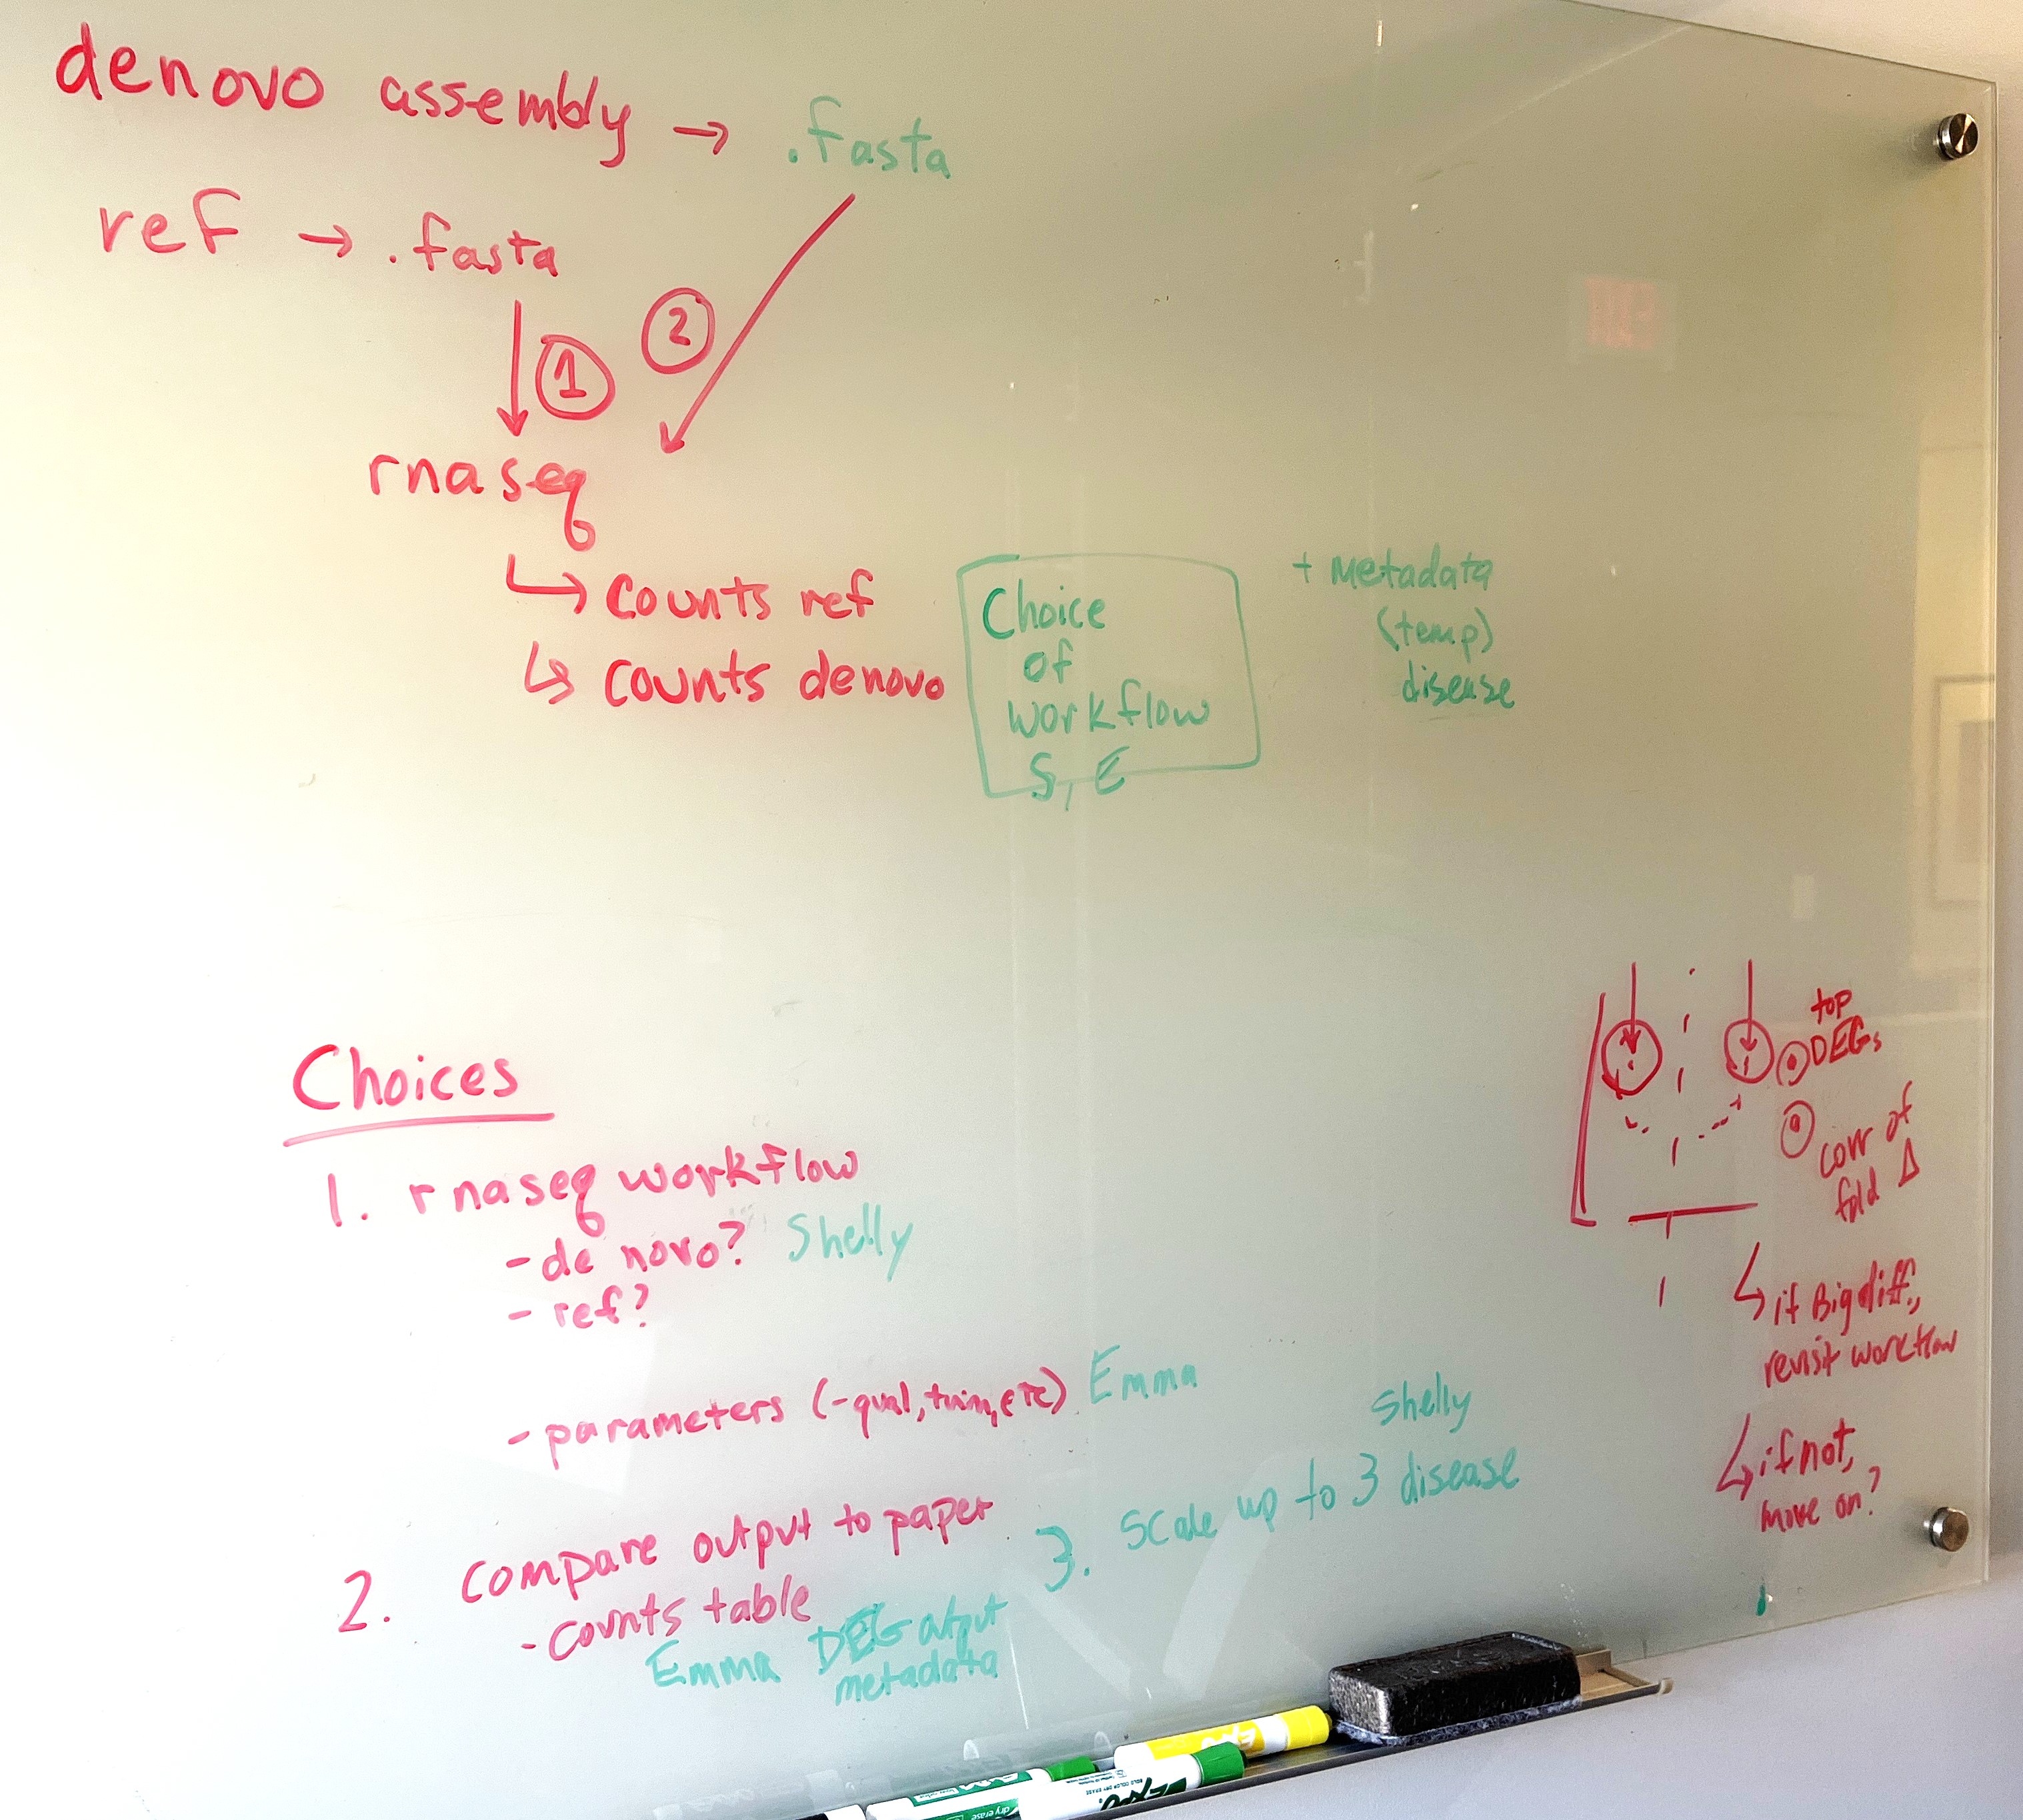 denovo assembly → .fasta
ref → .fasta
1
2
rnaseq
↳ counts ref
↳ counts denovo
Choice
of
workflow
S, E
+ metadata
(temp)
disease
Choices
1. rnaseq workflow
- de novo? Shelly
- ref?
- parameters (-qual, trim, etc) Emma
2. compare output to paper
- counts table
Emma DEG output
metadata
Shelly
3. Scale up to 3 disease
top
DEGs
corr of
fold Δ
↳ if Big diff.,
revisit workflow
↳ if not,
move on?
EXPO
EXPO
EXPO
dry erase